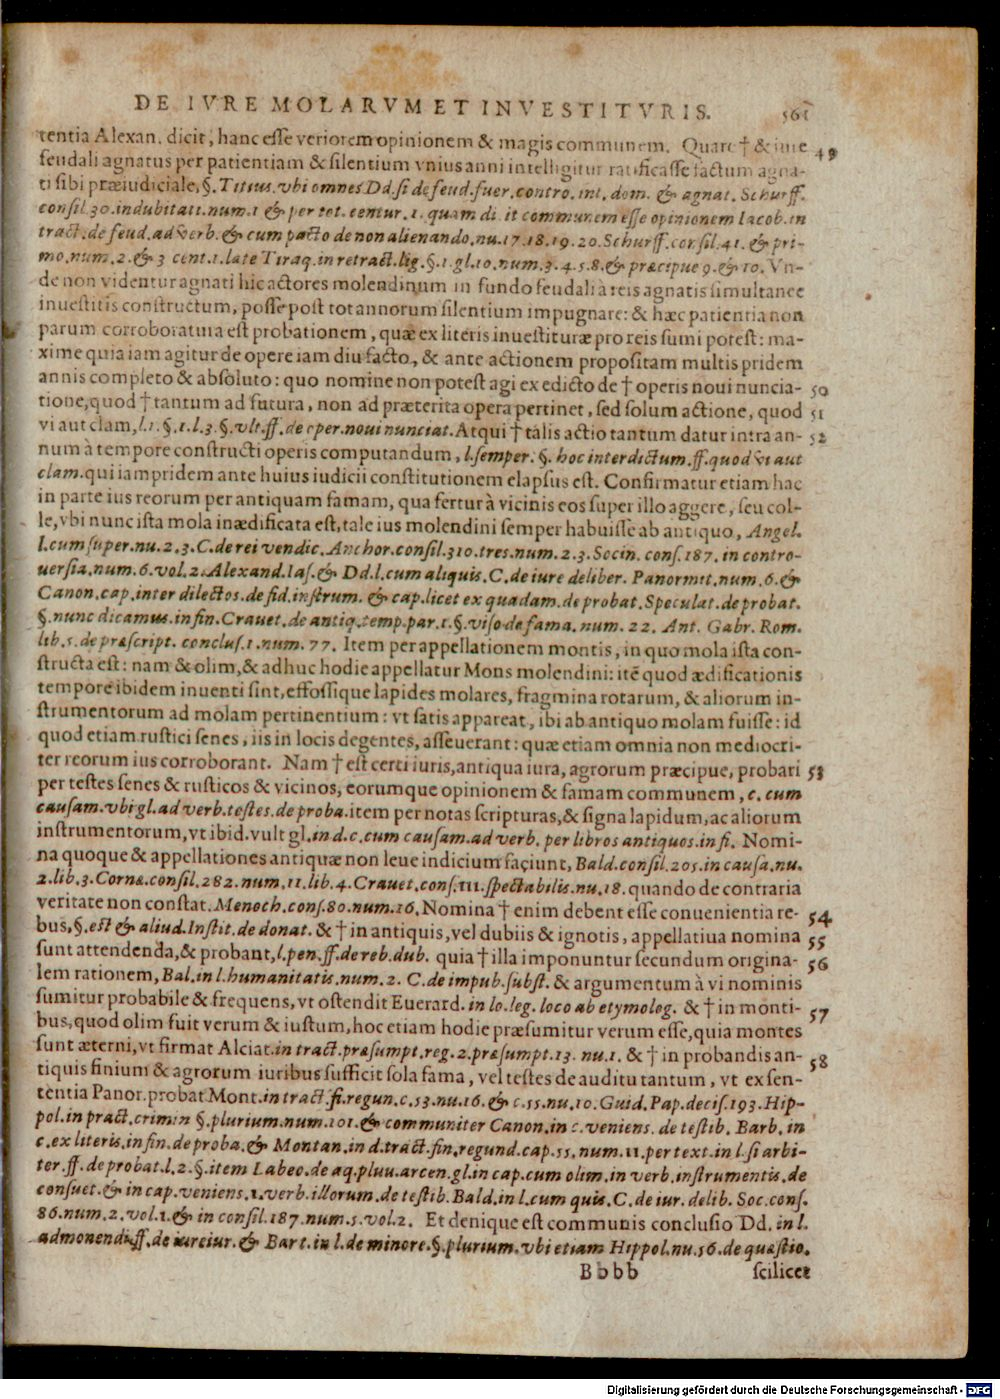 DE IVRE MOLARVM ET INVESTITVRIS. 561
tentia Alexan. dicit, hanc esse veriorem opinionem & magis communem. Quare † & iure 49
feudali agnatus per patientiam & silentium vnius anni intelligitur ratificasse factum agna-
ti sibi præiudiciale, §. Titius. vbi omnes Dd. si de feud. fuer. contro. int. dom. & agnat. Schurff.
consil. 30. indubitati. num. 1 & per tot. centur. 1. quam dicit communem esse opinionem Iacob. in
tract. de feud. ad verb. & cum pacto de non alienando. nu. 17. 18. 19. 20. Schurff. consil. 41. & pri-
mo. num. 2. & 3 cent. 1. late Tiraq. in retract. lig. §. 1. gl. 10. num. 3. 4. 5. 8. & præcipue 9. & 10. Vn-
de non videntur agnati hic actores molendinum in fundo feudali à reis agnatis simultanee
inuestitis constructum, posse post tot annorum silentium impugnare: & hæc patientia non
parum corroboratura est probationem, quæ ex literis inuestituræ pro reis sumi potest: ma-
xime quia iam agitur de opere iam diu facto, & ante actionem propositam multis pridem
annis completo & absoluto: quo nomine non potest agi ex edicto de † operis noui nuncia- 50
tione, quod † tantum ad futura, non ad præterita opera pertinet, sed solum actione, quod 51
vi aut clam, l. 1. §. 1. l. 3. §. vlt. ff. de oper. noui nunciat. Atqui † talis actio tantum datur intra an- 52
num à tempore constructi operis computandum, l. semper. §. hoc interdictum. ff. quod vi aut
clam. qui iampridem ante huius iudicii constitutionem elapsus est. Confirmatur etiam hac
in parte ius reorum per antiquam famam, qua fertur à vicinis eos super illo aggere, seu col-
le, vbi nunc ista mola inædificata est, tale ius molendini semper habuisse ab antiquo, Angel.
l. cum super. nu. 2. 3. C. de rei vendic. Anchor. consil. 310. tres. num. 2. 3. Socin. cons. 187. in contro-
uersia. num. 6. vol. 2. Alexand. Ias. & Dd. l. cum aliquis. C. de iure deliber. Panormit. num. 6. &
Canon. cap. inter dilectos. de fid. instrum. & cap. licet ex quadam. de probat. Speculat. de probat.
§. nunc dicamus. in fin. Crauet. de antiq. temp. par. 1. §. viso de fama. num. 22. Ant. Gabr. Rom.
lib. 5. de præscript. conclus. 1. num. 77. Item per appellationem montis, in quo mola ista con-
structa est: nam & olim, & adhuc hodie appellatur Mons molendini: itẽ quod ædificationis
tempore ibidem inuenti sint, effossique lapides molares, fragmina rotarum, & aliorum in-
strumentorum ad molam pertinentium: vt satis appareat, ibi ab antiquo molam fuisse: id
quod etiam rustici senes, iis in locis degentes, asseuerant: quæ etiam omnia non mediocri-
ter reorum ius corroborant. Nam † est certi iuris, antiqua iura, agrorum præcipue, probari 53
per testes senes & rusticos & vicinos, eorumque opinionem & famam communem, c. cum
causam. vbi gl. ad verb. testes. de proba. item per notas scripturas, & signa lapidum, ac aliorum
instrumentorum, vt ibid. vult gl. in d. c. cum causam. ad verb. per libros antiquos. in fi. Nomi-
na quoque & appellationes antiquæ non leue indicium faciunt, Bald. consil. 205. in causa. nu.
2. lib. 3. Corne. consil. 282. num. 11. lib. 4. Crauet. cons. 111. spectabilis. nu. 18. quando de contraria
veritate non constat. Menoch. cons. 80. num. 16. Nomina † enim debent esse conuenientia re- 54
bus, §. est & aliud. Instit. de donat. & † in antiquis, vel dubiis & ignotis, appellatiua nomina 55
sunt attendenda, & probant, l. pen. ff. de reb. dub. quia † illa imponuntur secundum origina- 56
lem rationem, Bal. in l. humanitatis. num. 2. C. de impub. subst. & argumentum à vi nominis
sumitur probabile & frequens, vt ostendit Euerard. in lo. leg. loco ab etymolog. & † in monti- 57
bus, quod olim fuit verum & iustum, hoc etiam hodie præsumitur verum esse, quia montes
sunt æterni, vt firmat Alciat. in tract. præsumpt. reg. 2. præsumpt. 13. nu. 1. & † in probandis an- 58
tiquis finium & agrorum iuribus sufficit sola fama, vel testes de auditu tantum, vt ex sen-
tentia Panor. probat Mont. in tract. fi. regun. c. 53. nu. 16. & c. 55. nu. 10. Guid. Pap. decis. 193. Hip-
pol. in pract. crimin §. plurium. num. 101. & communiter Canon. in c. veniens. de testib. Barb. in
c. ex literis. in fin. de proba. & Montan. in d. tract. fin. regund. cap. 55. num. 11. per text. in l. si arbi-
ter. ff. de probat. l. 2. §. item Labeo. de aq. pluu. arcen. gl. in cap. cum olim. in verb. instrumentis. de
consuet. & in cap. veniens. 1. verb. illorum. de testib. Bald. in l. cum quis. C. de iur. delib. Soc. cons.
86. num. 2. vol. 1. & in consil. 187. num. 5. vol. 2. Et denique est communis conclusio Dd. in l.
admonendi. ff. de iureiur. & Bart. in l. de minore. §. plurium. vbi etiam Hippol. nu. 56. de quæstio.
Bbbb scilicet
Digitalisierung gefördert durch die Deutsche Forschungsgemeinschaft - DFG